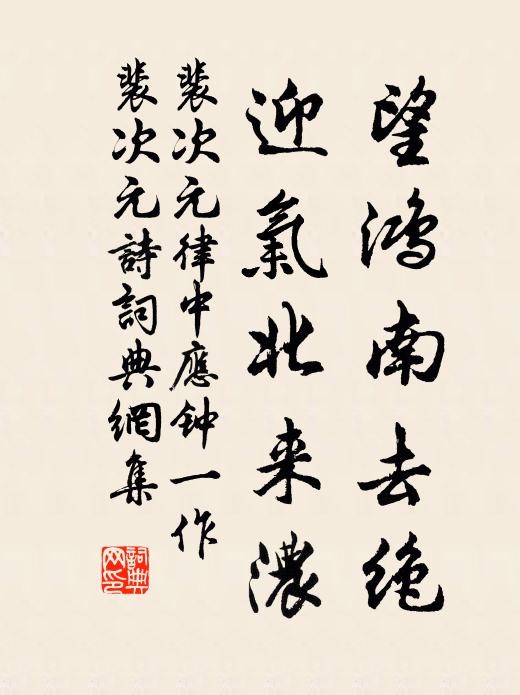 望鸿南去绝
迎氣北来濃
裴次元律中應钟一作
裴次元詩詞典網集
詞典网印